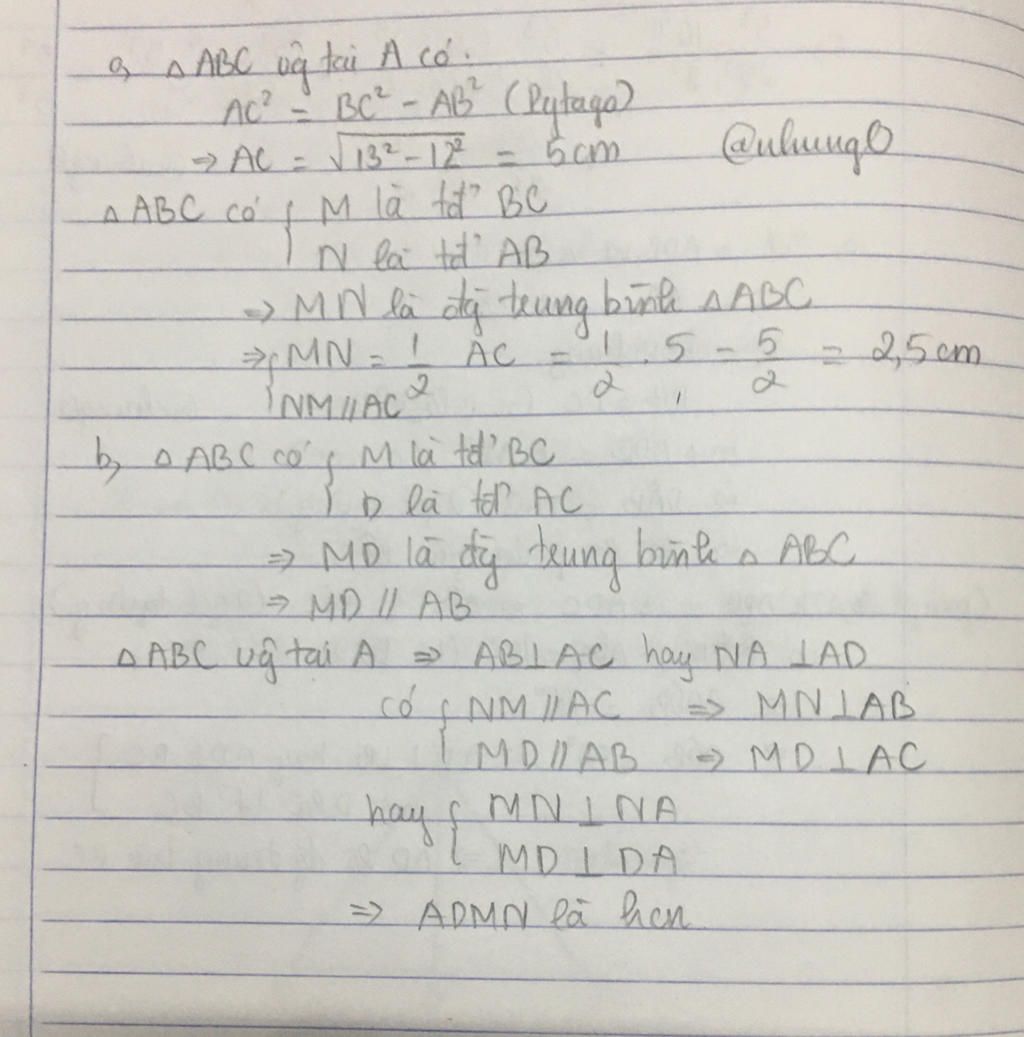 a, △ABC vg tại A có.
AC² = BC² - AB² (Pytago)
⇒ AC = √13²-12² = 5cm @nhung0
△ABC có { M là tđ' BC
N là tđ' AB
⇒ MN là đg trung bình △ABC
⇒ { MN = 1/2 AC = 1/2 . 5 = 5/2 = 2,5cm
NM // AC
b, △ABC có { M là tđ' BC
D là tđ' AC
⇒ MD là đg trung bình △ABC
⇒ MD // AB
△ABC vg tại A ⇒ AB⊥AC hay NA⊥AD
có { NM // AC ⇒ MN⊥AB
MD // AB ⇒ MD⊥AC
hay { MN⊥NA
MD⊥DA
⇒ ADMN là hcn